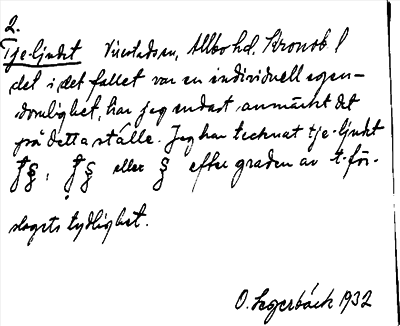 2.
Tje-ljudet Vieslanda sn, Allbo hd. Kronob. l
det i det fallet var en individuell egen-
domlighet, har jag endast anmärkt det
på detta ställe. Jag har tecknat tje-ljudet
eller efter graden av t-för-
slagets tydlighet.
O. Segerbäck 1932